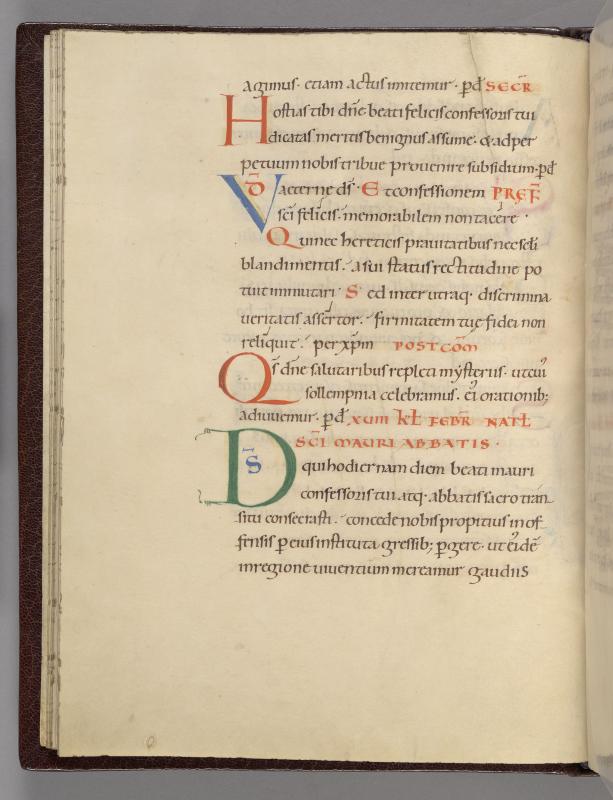 agimus· etiam actus imitemur· p̄d SECR̄
Hostias tibi dn̄e beati felicis confessoris tui
dicatas meritis benignus assume· & ad per
petuum nobis tribue prouenire subsidium· p̄d
VD̄ aeterne ds̄· Et confessionem PREF̄
sc̄i felicis· memorabilem non tacere·
Qui nec hereticis prauitatibus nec seculi
blandimentis· a sui status rectitudine po
tuit inmutari· Sed inter utraq· discrimina
ueritatis assertor· firmitatem tuę fidei non
reliquit· per xp̄m POST COM̄
Qs̄ dn̄e salutaribus repleti mysteriis· ut cuius
sollempnia celebramus· ei orationib;
adiuuemur· p̄d XVIII KL̄ FEBR̄ NATL̄
SC̄I MAURI ABBATIS·
DS̄ qui hodiernam diem beati mauri
confessoris tui atq· abbatis sacro tran
situ consecrasti· concede nobis propitius inof
fensis p̄ eius instituta gressib; p̄gere· ut eidē
in regione uiuentium mereamur gaudiis